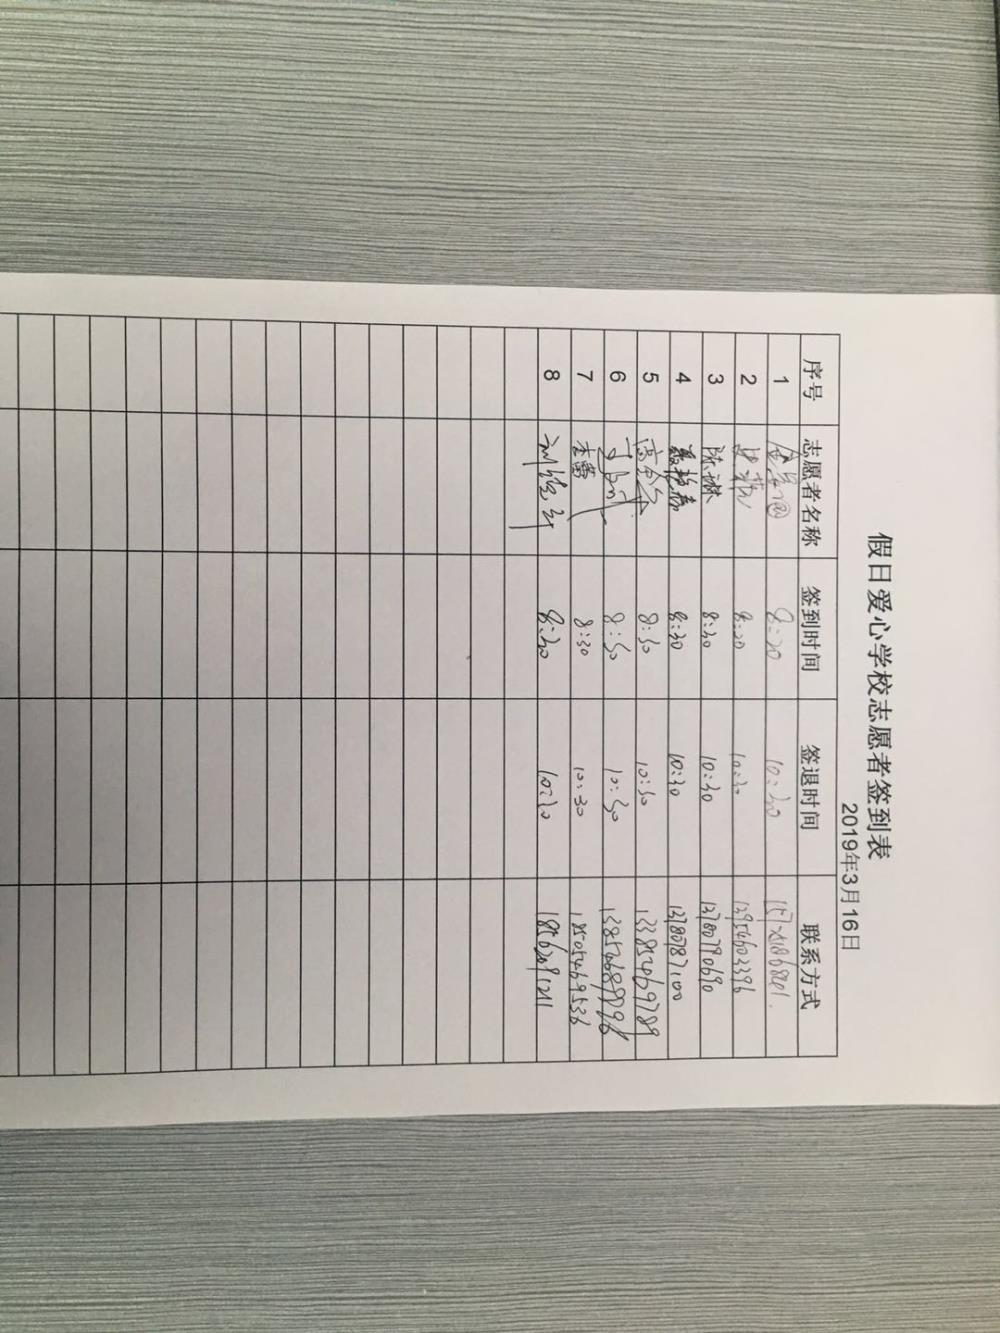 假日爱心学校志愿者签到表
2019年3月16日
序号 志愿者名称 签到时间 签退时间 联系方式
1 8:20 10:30
2 8:20 10:30 13954603396
3 陈琳 8:30 10:30 13780790690
4 聂艳春 8:30 10:30 13780787100
5 8:30 10:30 13385469789
6 8:30 10:30 13854689996
7 李蕾 8:30 10:30 18505469536
8 8:30 10:30 18562091211